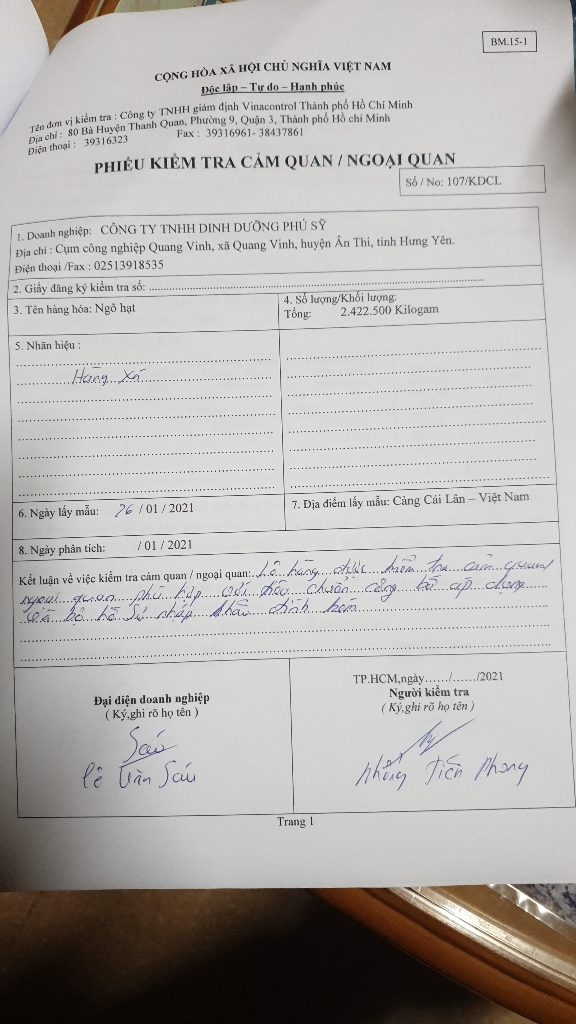 BM.15-1
CỘNG HÒA XÃ HỘI CHỦ NGHĨA VIỆT NAM
Độc lập – Tự do – Hạnh phúc
Tên đơn vị kiểm tra : Công ty TNHH giám định Vinacontrol Thành phố Hồ Chí Minh
Địa chỉ : 80 Bà Huyện Thanh Quan, Phường 9, Quận 3, Thành phố Hồ chí Minh
Điện thoại : 39316323 Fax : 39316961- 38437861
PHIẾU KIỂM TRA CẢM QUAN / NGOẠI QUAN
Số / No: 107/KDCL
1. Doanh nghiệp: CÔNG TY TNHH DINH DƯỠNG PHÚ SỸ
Địa chỉ : Cụm công nghiệp Quang Vinh, xã Quang Vinh, huyện Ân Thi, tỉnh Hưng Yên.
Điện thoại /Fax : 02513918535
2. Giấy đăng ký kiểm tra số:
3. Tên hàng hóa: Ngô hạt
4. Số lượng/Khối lượng:
Tổng: 2.422.500 Kilogam
5. Nhãn hiệu :
Hàng xá
6. Ngày lấy mẫu: 26 / 01 / 2021
7. Địa điểm lấy mẫu: Cảng Cái Lân – Việt Nam
8. Ngày phân tích: / 01 / 2021
Kết luận về việc kiểm tra cảm quan / ngoại quan: Lô hàng được kiểm tra cảm quan/
ngoại quan phù hợp với tiêu chuẩn công bố áp dụng
và bộ hồ sơ nhập khẩu đính kèm
Đại diện doanh nghiệp
( Ký,ghi rõ họ tên )
Sáu
Lê Văn Sáu
TP.HCM,ngày....../....../2021
Người kiểm tra
( Ký,ghi rõ họ tên )
Tiến Phong
Trang 1